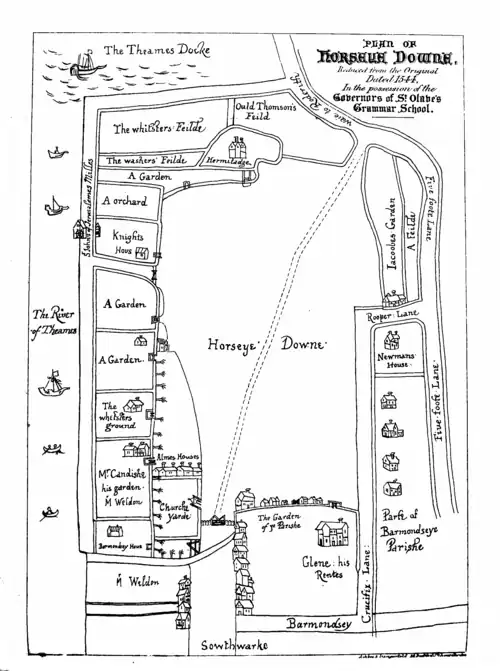 PLAN OF
HORSEYE DOWNE,
Reduced from the Original
Dated 1544.
In the possession of the
Governors of St. Olave's
Grammar School.
The Theames Docke
waie to Rederith
Ould Thomson's
Feild
The whitsters Feilde
The washers' Feilde
Hermitadge
A Garden
A orchard
Knights
Hous
A Garden
The River
of Theames
A Garden.
The
whitsters
ground
Almes Houses
Mr. Candishe
his garden.
M Weldon
Churche
Yarde
Barmondsey Hous
M Weldon
Horseye Downe
Iacoobes Garden
A Feilde
Five foote Lane
Rooper Lane
Newmans
House
Five foote Lane
Parte of
Barmondseye
Parishe
The Garden
of ye Parishe
Glene: his
Rentes
Crucifix Lane
Barmondsey
Sowthwarke